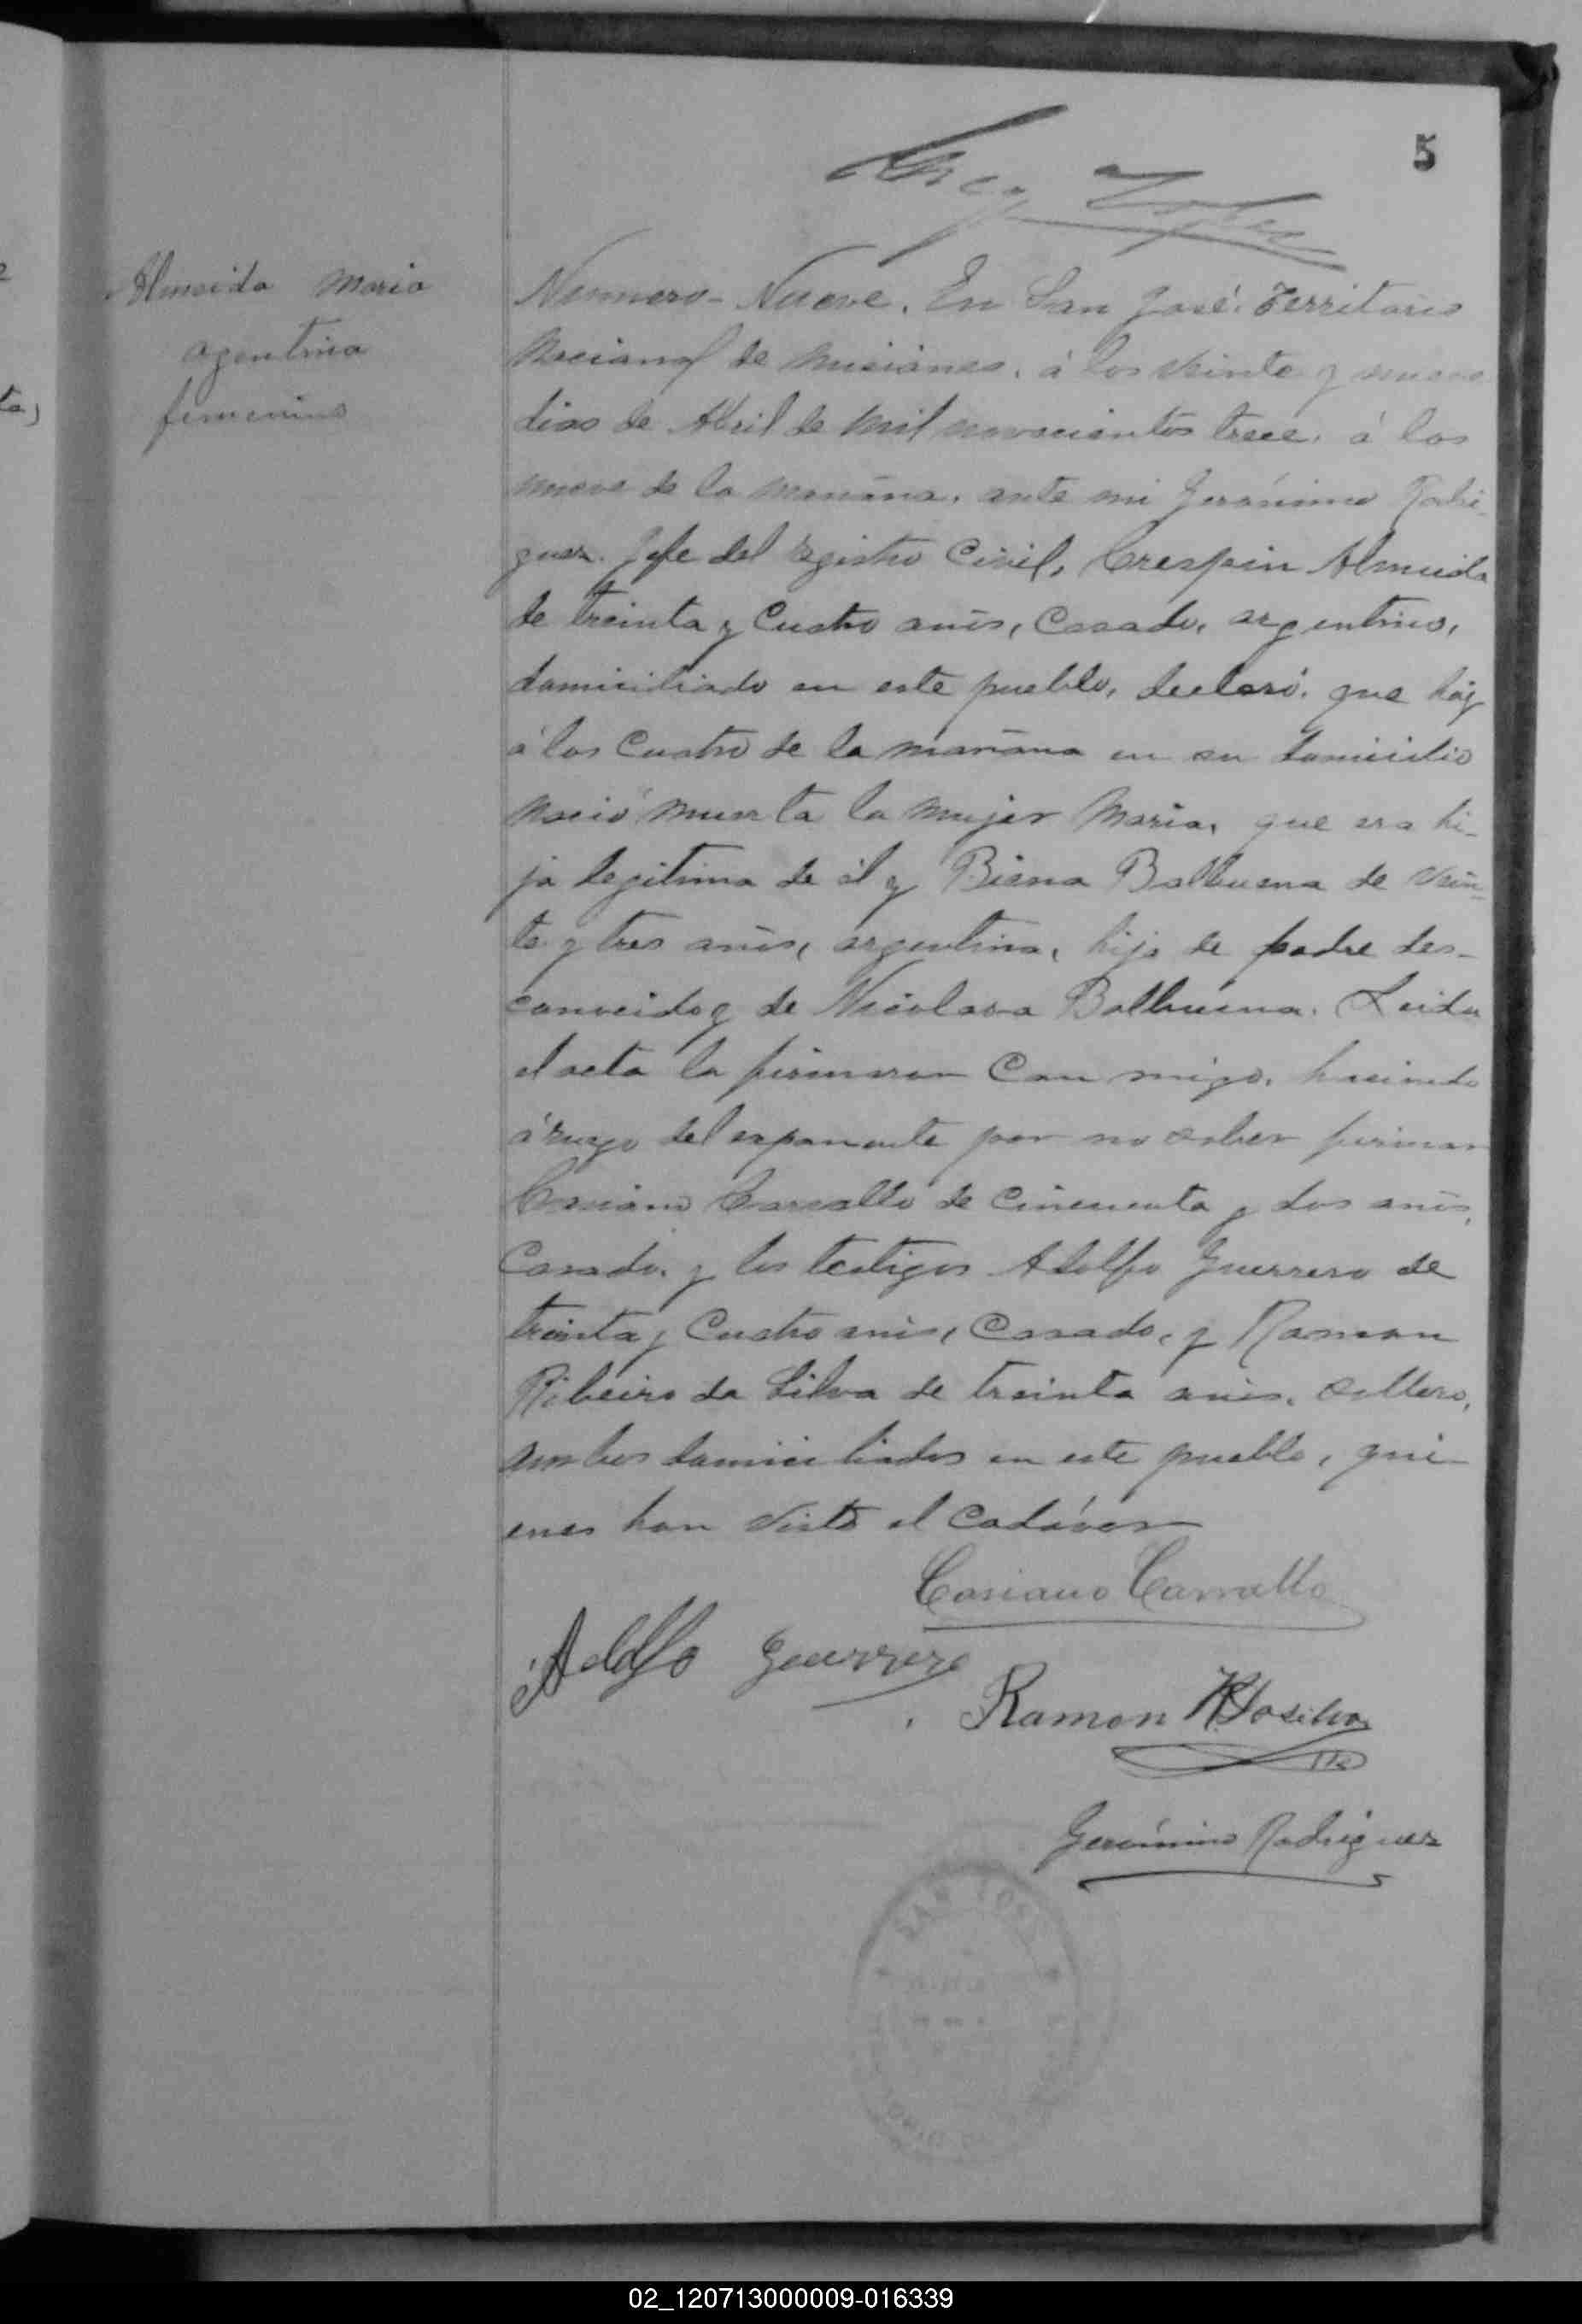 5
Almeida Maria
agentina
femenino
Numero-Nueve. En San José. Territorio
Nacional de Misiones. á los veinte y nueve
dias de Abril de mil novecientos trece. á las
nueve de la mañana. ante mi Gerónimo Rodri-
guez. Jefe del registro Civil, Crespin Almeida
de treinta y Cuatro años, Casado, argentino,
domiciliado en este pueblo, declaró. que hoy
á las Cuatro de la mañana en su domicilio
nació muerta la mujer Maria, que era hi-
ja legitima de él y Biena Balbuena de vein-
te y tres años, argentina, hija de padre des-
conocido y de Nicolasa Balbuena. Leida
el acta la firmaron Con migo. haciendo
á ruego del exponente por no saber firmar
Casiano Carvallo de Cincuenta y dos años,
Casado. y los testigos Adolfo Guerrero de
treinta y Cuatro años, Casado, y Ramon
Ribeiro da Silva de treinta años. soltero,
ambos domiciliados en este pueblo, qui-
enes han visto el Cadáver
Casiano Carvallo
Adolfo Guerrero
Ramon R Dasilva
Gerónimo Rodriguez
SAN JOSE
02_120713000009-016339